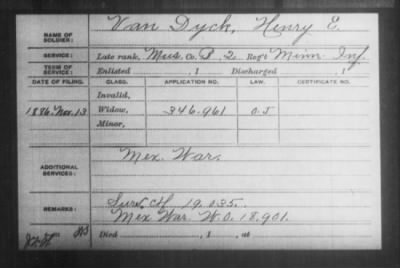 NAME OF SOLDIER: Van Dyck, Henry E.
SERVICE: Late rank, Mus. Co. B, 2 Reg't Minn Inf.
TERM OF SERVICE: Enlisted 1 Discharged 1
DATE OF FILING. CLASS. APPLICATION NO. LAW. CERTIFICATE NO.
Invalid,
1886. Nov. 13 Widow, 346.961 O.S
Minor,
ADDITIONAL SERVICES: Mex. War.
REMARKS: 19.035.
Mex War. W.O. 18.901.
Died , 1 , at